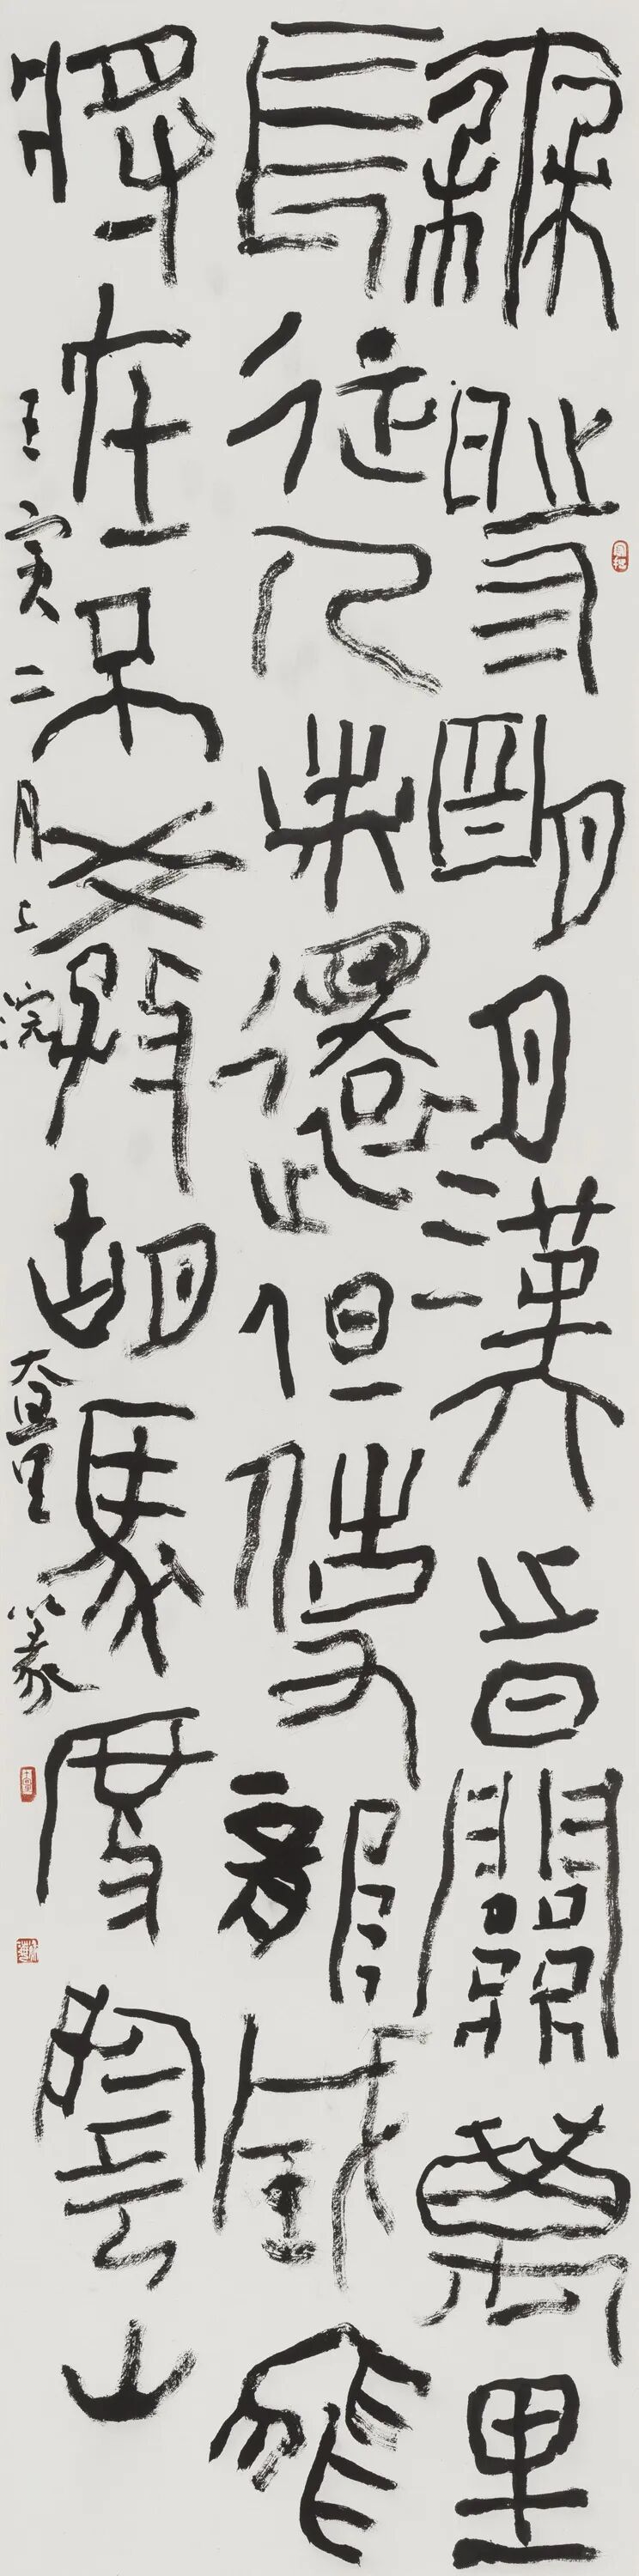 秦時明月漢時關萬里
長征人未還但使龍城飛
將在不教胡馬度陰山
壬寅二月上浣 篆